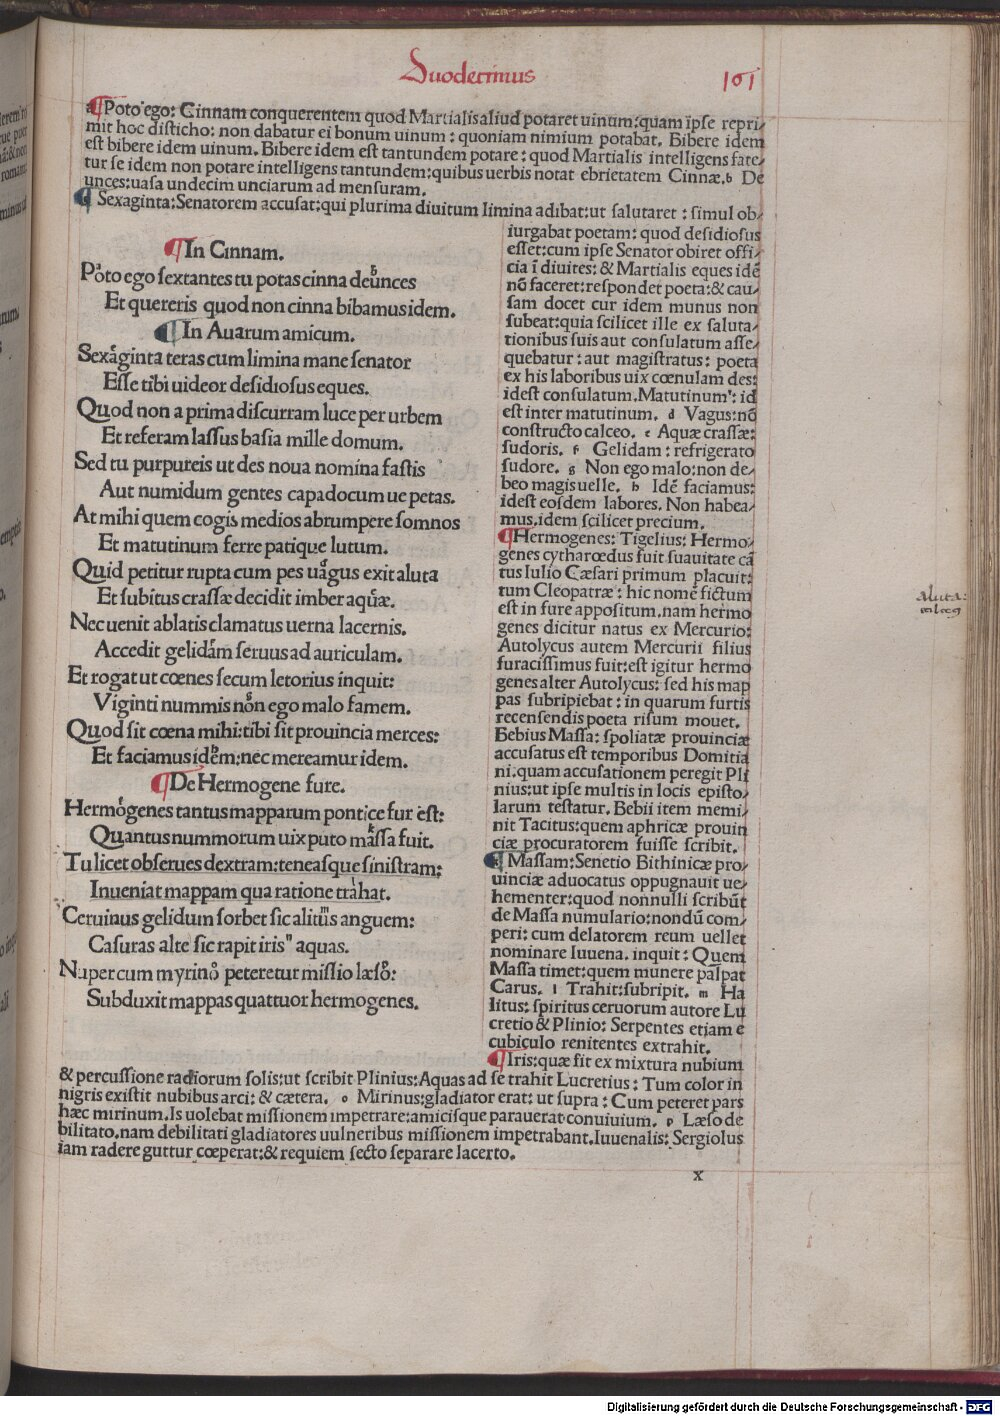 Duodecimus
101
a Poto ego: Cinnam conquerentem quod Martialis aliud potaret uinum: quam ipse repri/
mit hoc disticho: non dabatur ei bonum uinum: quoniam nimium potabat. Bibere idem
est bibere idem uinum. Bibere idem est tantundem potare: quod Martialis intelligens fate/
tur se idem non potare intelligens tantundem: quibus uerbis notat ebrietatem Cinnæ. b De
unces: uasa undecim unciarum ad mensuram.
Sexaginta: Senatorem accusat: qui plurima diuitum limina adibat: ut salutaret: simul ob/
In Cinnam.
Poto ego sextantes tu potas cinna deunces
Et quereris quod non cinna bibamus idem.
In Auarum amicum.
Sexaginta teras cum limina mane senator
Esse tibi uideor desidiosus eques.
Quod non a prima discurram luce per urbem
Et referam lassus basia mille domum.
Sed tu purpureis ut des noua nomina fastis
Aut numidum gentes capadocum ue petas.
At mihi quem cogis medios abrumpere somnos
Et matutinum ferre patique lutum.
Quid petitur rupta cum pes uagus exit aluta
Et subitus crassæ decidit imber aquæ.
Nec uenit ablatis clamatus uerna lacernis.
Accedit gelidam seruus ad auriculam.
Et rogat ut cœnes secum letorius inquit:
Viginti nummis non ego malo famem.
Quod sit cœna mihi: tibi sit prouincia merces:
Et faciamus idem: nec mereamur idem.
De Hermogene fure.
Hermogenes tantus mapparum pontice fur est:
Quantus nummorum uix puto massa fuit.
Tu licet obserues dextram: teneasque sinistram:
Inueniat mappam qua ratione trahat.
Ceruinus gelidum sorbet sic alitus anguem:
Casuras alte sic rapit iris n aquas.
Nuper cum myrino peteretur missio læso:
Subduxit mappas quattuor hermogenes.
iurgabat poetam: quod desidiosus
esset: cum ipse Senator obiret offi/
cia ī diuites: & Martialis eques idē
nō faceret: respondet poeta: & cau/
sam docet cur idem munus non
subeat: quia scilicet ille ex saluta/
tionibus suis aut consulatum asse/
quebatur: aut magistratus: poeta
ex his laboribus uix cœnulam des:
idest consulatum. Matutinum: id
est inter matutinum. d Vagus: nō
constructo calceo. e Aquæ crassæ:
sudoris. f Gelidam: refrigerato
sudore. g Non ego malo: non de/
beo magis uelle. h Idē faciamus:
idest eosdem labores. Non habea/
mus. idem scilicet precium.
Hermogenes: Tigelius: Hermo/
genes cytharœdus fuit suauitate cā
tus Iulio Cæsari primum placuit:
tum Cleopatræ: hic nomē fictum
est in fure appositum. nam hermo
genes dicitur natus ex Mercurio:
Autolycus autem Mercurii filius
furacissimus fuit: est igitur hermo
genes alter Autolycus: sed his map
pas subripiebat: in quarum furtis
recensendis poeta risum mouet.
Bebius Massa: spoliatæ prouinciæ
accusatus est temporibus Domitia
ni: quam accusationem peregit Pli
nius: ut ipse multis in locis episto/
larum testatur. Bebii item memi/
nit Tacitus: quem aphricæ prouin
ciæ procuratorem fuisse scribit.
Massam: Senetio Bithinicæ pro/
uinciæ aduocatus oppugnauit ue/
hementer: quod nonnulli scribūt
de Massa numulario: nondū com/
peri: cum delatorem reum uellet
nominare Iuuena. inquit: Quem
Massa timet: quem munere palpat
Carus. l Trahit: subripit. m Ha
litus: spiritus ceruorum autore Lu
cretio & Plinio: Serpentes etiam e
cubiculo renitentes extrahit.
Iris: quæ fit ex mixtura nubium
& percussione radiorum solis: ut scribit Plinius: Aquas ad se trahit Lucretius: Tum color in
nigris existit nubibus arci: & cætera. o Mirinus: gladiator erat: ut supra: Cum peteret pars
hæc mirinum. Is uolebat missionem impetrare: amicisque parauerat conuiuium. p Læso de
bilitato. nam debilitati gladiatores uulneribus missionem impetrabant. Iuuenalis: Sergiolus
iam radere guttur cœperat: & requiem secto separare lacerto.
x
aluta:
Digitalisierung gefördert durch die Deutsche Forschungsgemeinschaft - DFG